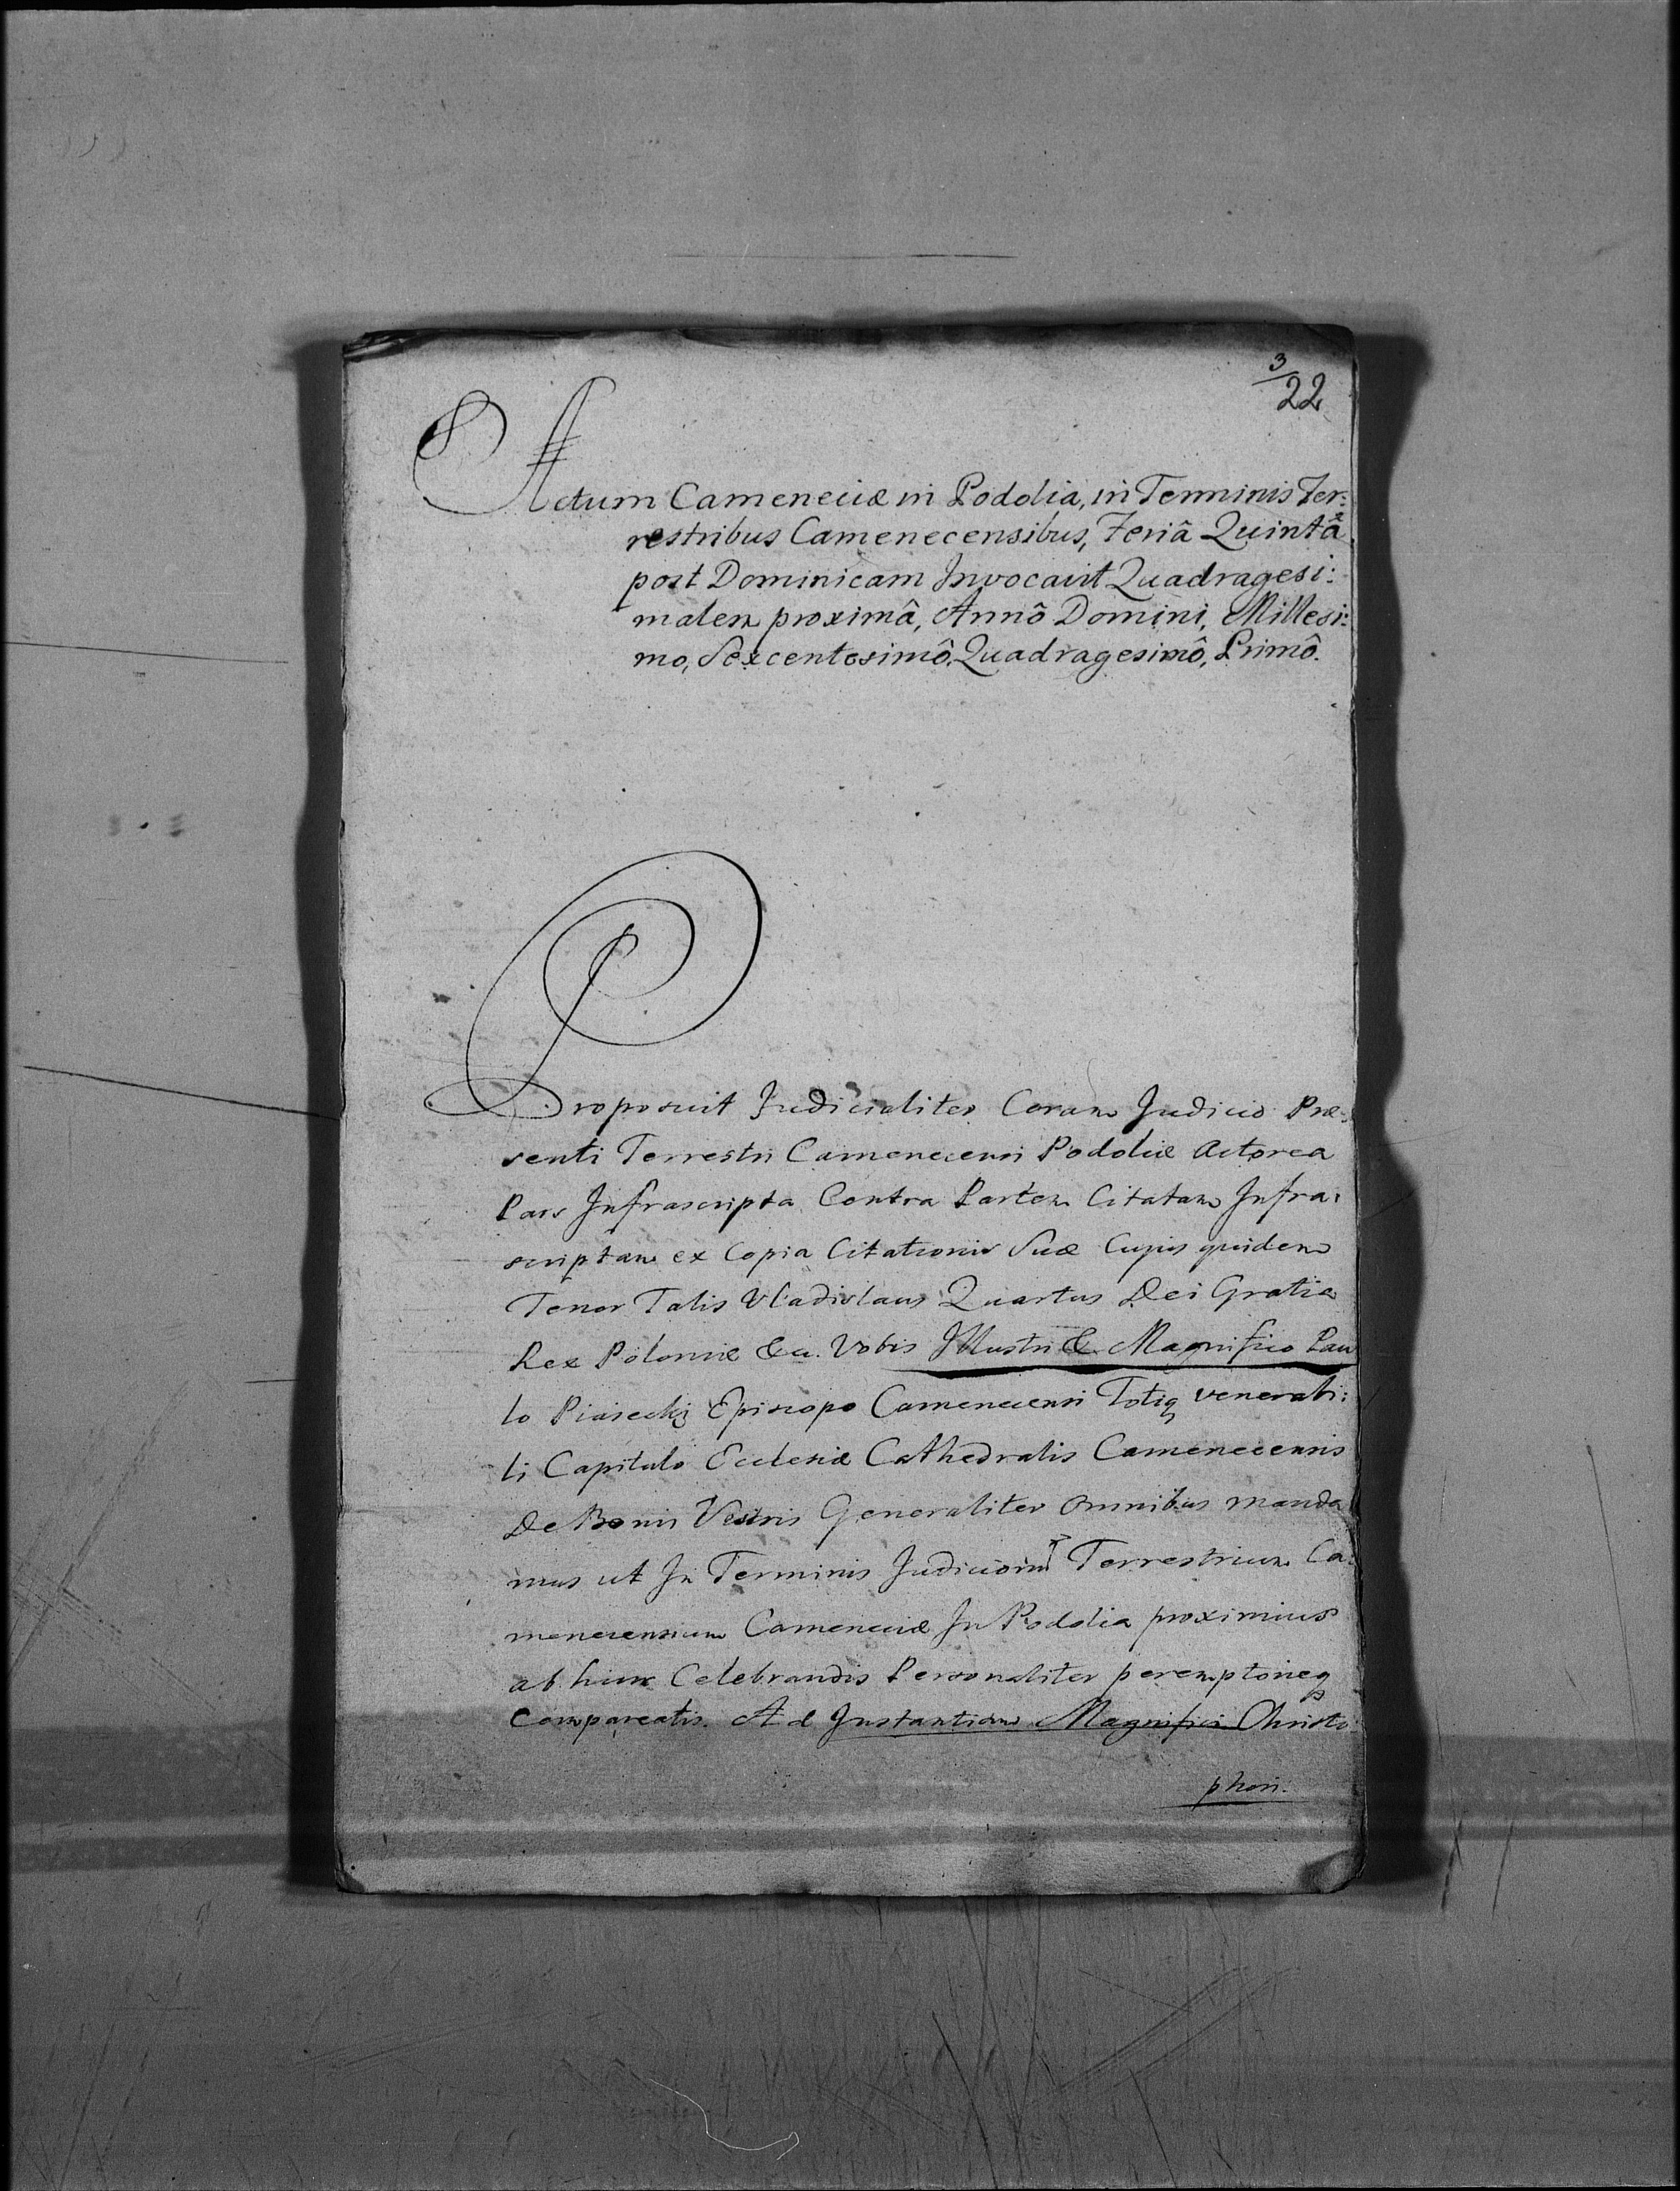 3
22
Actum Cameneciæ in Podolia, in Terminis Ter:
restribus Camenecensibus, Feriâ Quintâ
post Dominicam Invocavit Quadragesi:
malem proximâ, Annô Domini, Millesi:
mo, Sexcentesimô, Quadragesimô, Primô.
Proposuit Judicialiter Coram Judicio Præ
senti Terrestri Camenecensi Podoliæ Actorea
Pars Infrascripta Contra Partem Citatam Infra:
scriptam ex Copia Citationis Suæ Cujus quidem
Tenor Talis Vladislaus Quartus Dei Gratia
Rex Poloniæ &c. Vobis Illustri & Magnifico Pau
lo Piasecky Episcopo Camenecensi Totiq venerabi:
li Capitulo Ecclesiæ Cathedralis Camenecensis
De Bonis Vestris Generaliter Omnibus manda
mus ut In Terminis Judiciorum Terrestrium Ca:
menecensium Cameneciæ In Podolia proximius
ab hinc Celebrandis Personaliter peremptorieq
Compareatis. Ad Instantiam Magnifici Christo
phori.